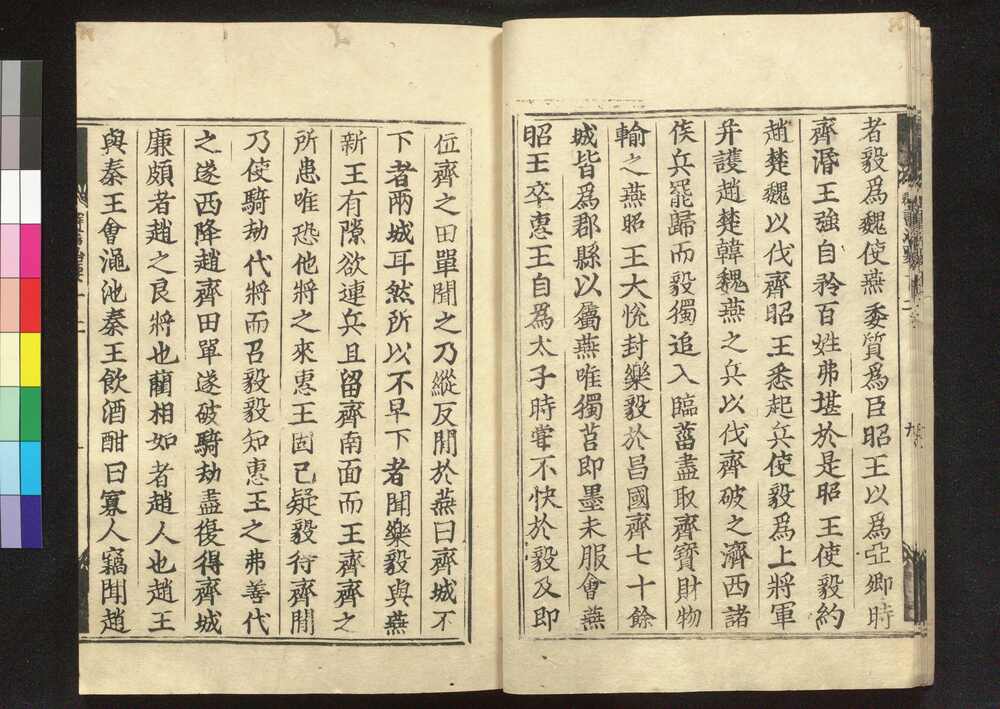 者毅爲魏使燕委質爲臣昭王以爲亞卿時
齊湣王強自矜百姓弗堪於是昭王使毅約
趙楚魏以伐齊昭王悉起兵使毅爲上將軍
并護趙楚韓魏燕之兵以伐齊破之濟西諸
侯兵罷歸而毅獨追入臨菑盡取齊寶財物
輸之燕昭王大悅封樂毅於昌國齊七十餘
城皆爲郡縣以屬燕唯獨莒即墨未服會燕
昭王卒惠王自爲太子時甞不快於毅及即
位齊之田單聞之乃縱反間於燕曰齊城不
下者兩城耳然所以不早下者聞樂毅與燕
新王有隙欲連兵且留齊南面而王齊齊之
所患唯恐他將之來惠王固已疑毅得齊間
乃使騎劫代將而召毅毅知惠王之弗善代
之遂西降趙齊田單遂破騎劫盡復得齊城
廉頗者趙之良將也藺相如者趙人也趙王
與秦王會澠池秦王飲酒酣曰寡人竊聞趙